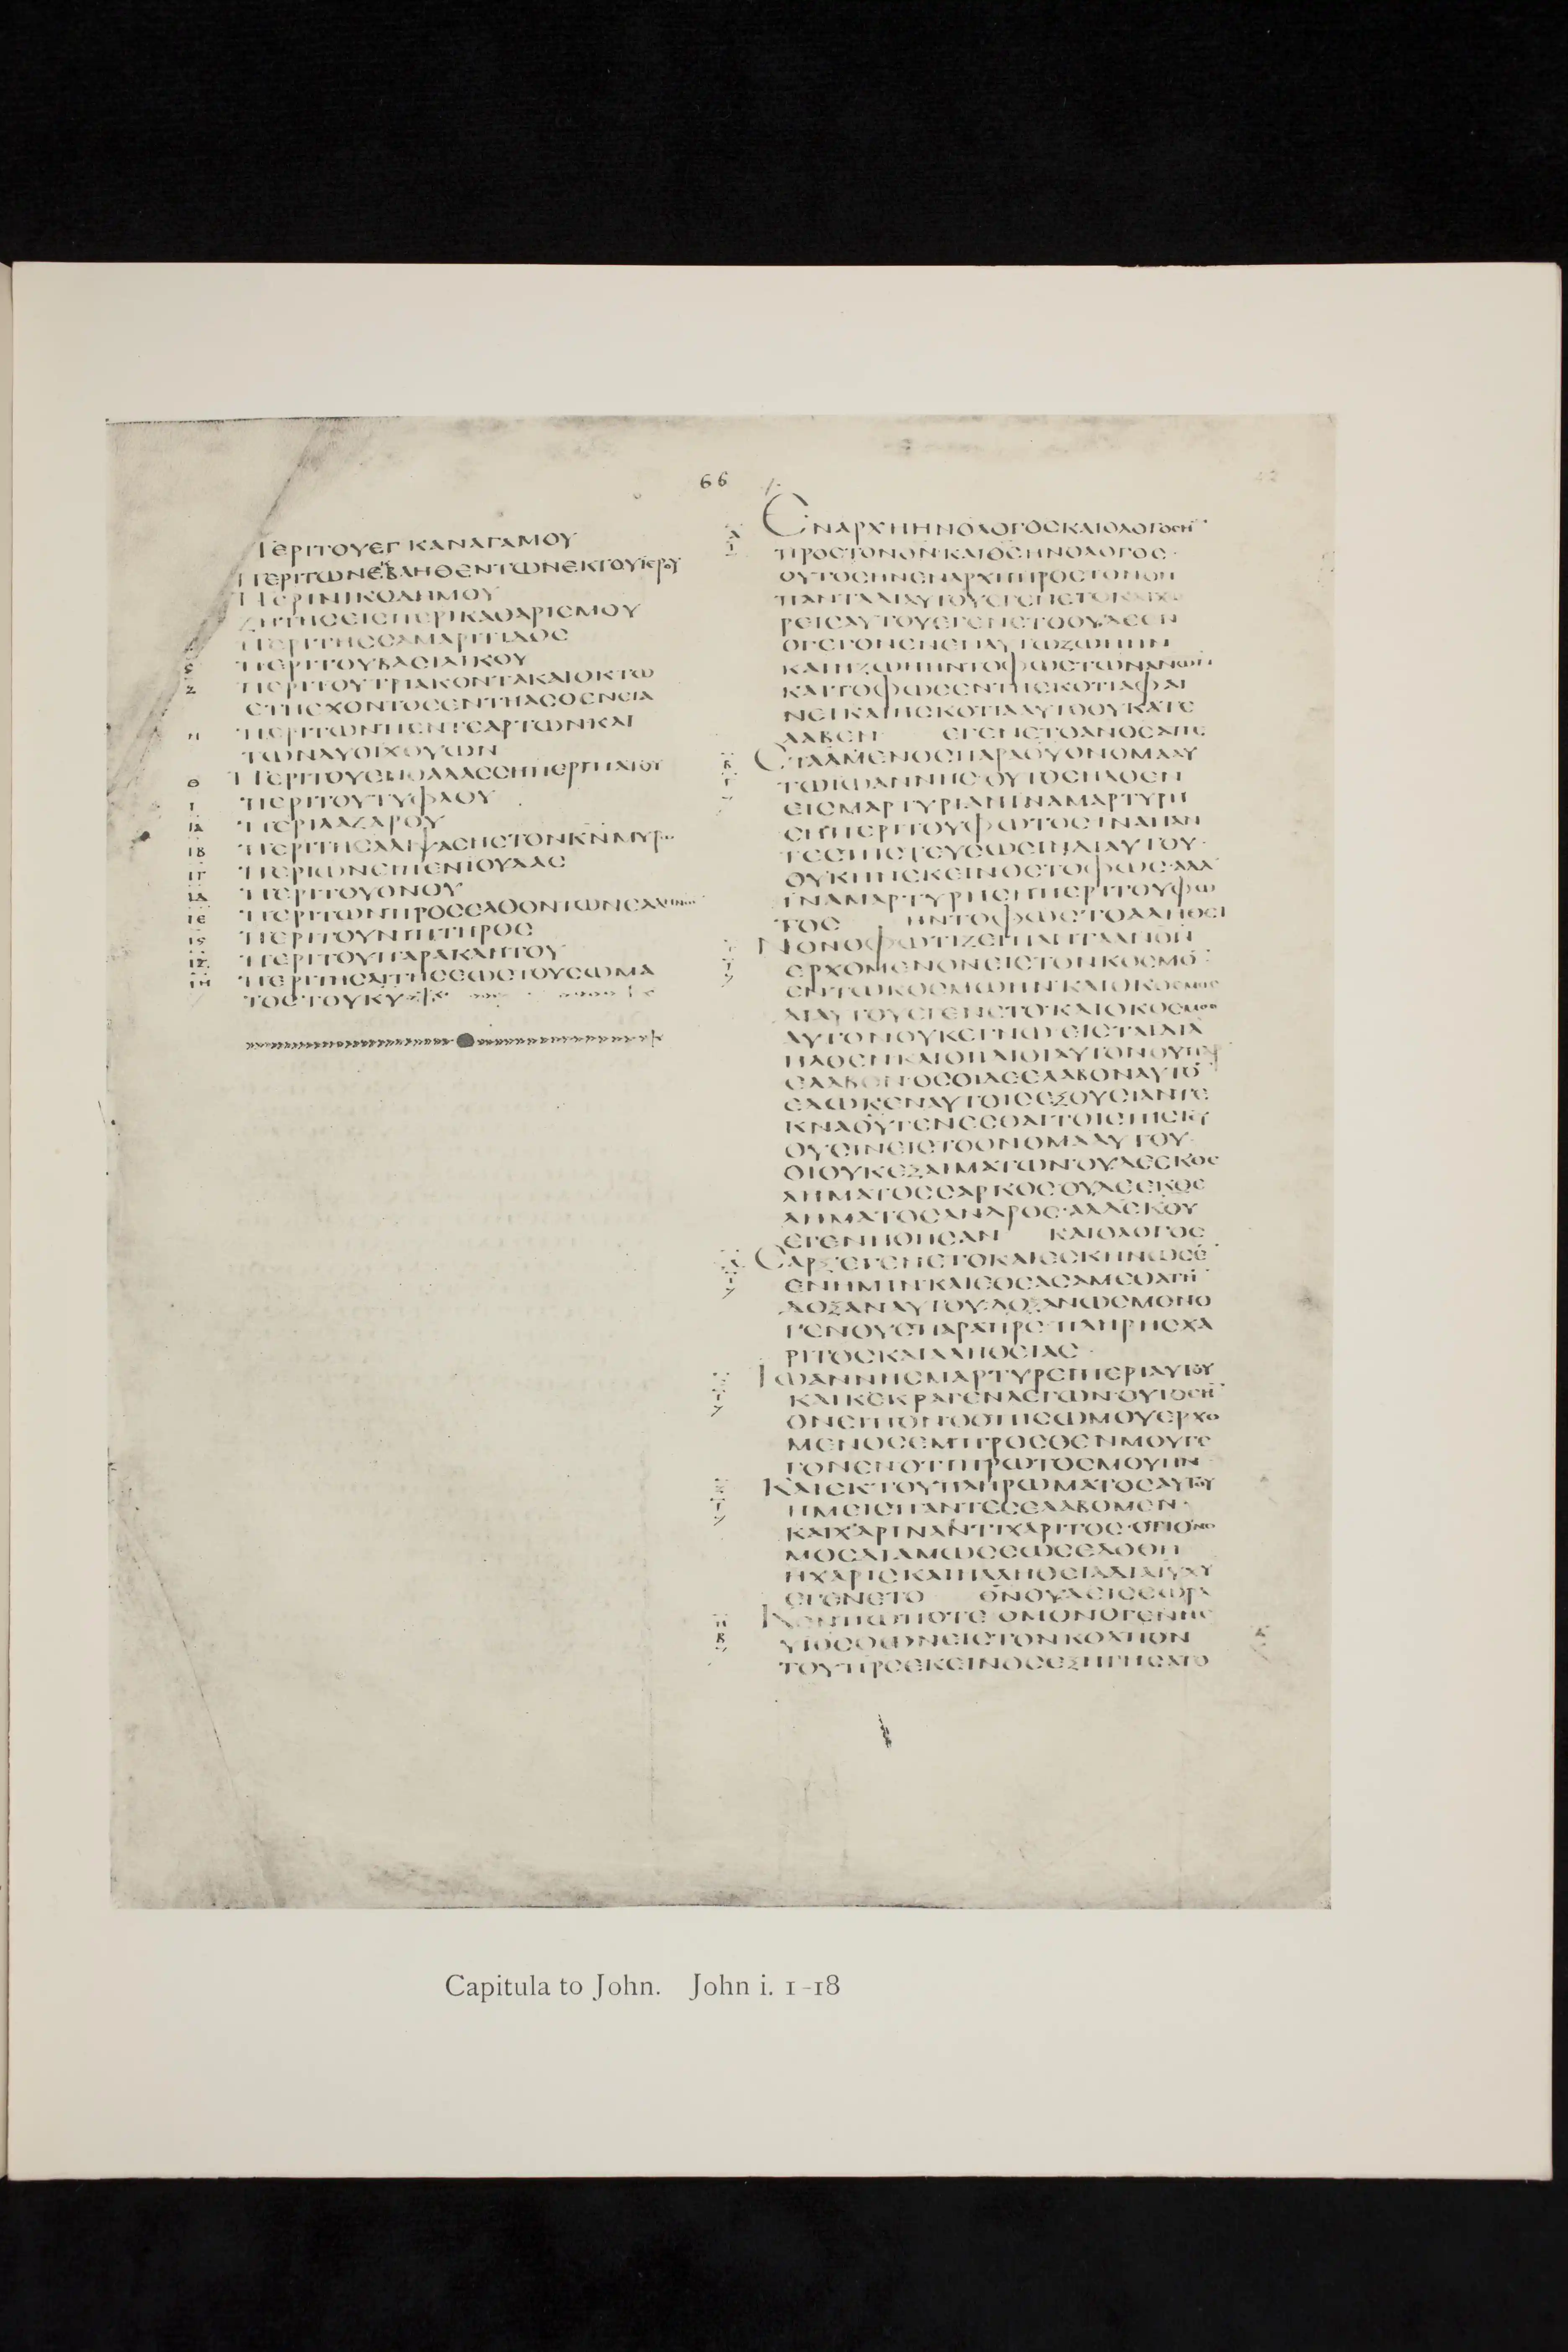 66
ΠΕΡΙΤΟΥΕΓΚΑΝΑΓΑΜΟΥ
ΠΕΡΙΤΩΝΕΚΒΛΗΘΕΝΤΩΝΕΚΤΟΥΙΕΡΟΥ
ΠΕΡΙΝΙΚΟΔΗΜΟΥ
ΖΗΤΗCΕΙCΠΕΡΙΚΑΘΑΡΙCΜΟΥ
ΠΕΡΙΤΗCCΑΜΑΡΙΤΙΔΟC
ϛ ΠΕΡΙΤΟΥΒΑCΙΛΙΚΟΥ
Ζ ΠΕΡΙΤΟΥΤΡΙΑΚΟΝΤΑΚΑΙΟΚΤΩ
ΕΤΗΕΧΟΝΤΟCΕΝΤΗΑCΘΕΝΕΙΑ
Η ΠΕΡΙΤΩΝΠΕΝΤΕΑΡΤΩΝΚΑΙ
ΤΩΝΔΥΟΙΧΘΥΩΝ
Θ ΠΕΡΙΤΟΥΕΝΘΑΛΑCCΗΠΕΡΙΠΑΤΟΥ
Ι ΠΕΡΙΤΟΥΤΥΦΛΟΥ
ΙΑ ΠΕΡΙΛΑΖΑΡΟΥ
ΙΒ ΠΕΡΙΤΗCΑΛΙΨΑCΗCΤΟΝΚΝΜΥΡ
ΙΓ ΠΕΡΙΩΝΕΙΠΕΝΙΟΥΔΑC
ΙΔ ΠΕΡΙΤΟΥΟΝΟΥ
ΙΕ ΠΕΡΙΤΩΝΠΡΟCΕΛΘΟΝΤΩΝΕΛΛΗΝ
ΙϚ ΠΕΡΙΤΟΥΝΙΠΤΗΡΟC
ΙΖ ΠΕΡΙΤΟΥΠΑΡΑΚΛΗΤΟΥ
ΙΗ ΠΕΡΙΤΗCΑΙΤΗCΕΩCΤΟΥCΩΜΑ
ΤΟCΤΟΥΚΥ
ΕΝΑΡΧΗΗΝΟΛΟΓΟCΚΑΙΟΛΟΓΟCΗ
ΠΡΟCΤΟΝΘΝ·ΚΑΙΘCΗΝΟΛΟΓΟC·
ΟΥΤΟCΗΝΕΝΑΡΧΗΠΡΟCΤΟΝΘΝ
ΠΑΝΤΑΔΙΑΥΤΟΥΕΓΕΝΕΤΟΚΑΙΧΩ
ΡΕΙCΑΥΤΟΥΕΓΕΝΕΤΟΟΥΔΕΕΝ
ΟΓΕΓΟΝΕΝΕΝΑΥΤΩΖΩΗΗΝ
ΚΑΙΗΖΩΗΗΝΤΟΦΩCΤΩΝΑΝΩΝ
ΚΑΙΤΟΦΩCΕΝΤΗCΚΟΤΙΑΦΑΙ
ΝΕΙΚΑΙΗCΚΟΤΙΑΑΥΤΟΟΥΚΑΤΕ
ΛΑΒΕΝ ΕΓΕΝΕΤΟΑΝΟCΑΠΕ
CΤΑΛΜΕΝΟCΠΑΡΑΘΥΟΝΟΜΑΑΥ
ΤΩΙΩΑΝΝΗC·ΟΥΤΟCΗΛΘΕΝ
ΕΙCΜΑΡΤΥΡΙΑΝΙΝΑΜΑΡΤΥΡΗ
CΗΠΕΡΙΤΟΥΦΩΤΟCΙΝΑΠΑΝ
ΤΕCΠΙCΤΕΥCΩCΙΝΔΙΑΥΤΟΥ·
ΟΥΚΗΝΕΚΕΙΝΟCΤΟΦΩC·ΑΛΛ
ΙΝΑΜΑΡΤΥΡΗCΗΠΕΡΙΤΟΥΦΩ
ΤΟC ΗΝΤΟΦΩCΤΟΑΛΗΘΕΙ
ΝΟΝΟΦΩΤΙΖΕΙΠΑΝΤΑΑΝΟΝ
ΕΡΧΟΜΕΝΟΝΕΙCΤΟΝΚΟCΜΟ
ΕΝΤΩΚΟCΜΩΗΝ·ΚΑΙΟΚΟCΜΟC
ΔΙΑΥΤΟΥΕΓΕΝΕΤΟ·ΚΑΙΟΚΟCΜΟC
ΑΥΤΟΝΟΥΚΕΓΝΩ·ΕΙCΤΑΙΔΙΑ
ΗΛΘΕΝΚΑΙΟΙΙΔΙΟΙΑΥΤΟΝΟΥΠΑΡ
ΕΛΑΒΟΝ·ΟCΟΙΔΕΕΛΑΒΟΝΑΥΤΟ
ΕΔΩΚΕΝΑΥΤΟΙCΕΞΟΥCΙΑΝΤΕ
ΚΝΑΘΥΓΕΝΕCΘΑΙΤΟΙCΠΙCΤΕΥ
ΟΥCΙΝΕΙCΤΟΟΝΟΜΑΑΥΤΟΥ·
ΟΙΟΥΚΕΞΑΙΜΑΤΩΝ·ΟΥΔΕΕΚΘΕ
ΛΗΜΑΤΟCCΑΡΚΟC·ΟΥΔΕΕΚΘΕ
ΛΗΜΑΤΟCΑΝΔΡΟC·ΑΛΛΕΚΘΥ
ΕΓΕΝΗΘΗCΑΝ ΚΑΙΟΛΟΓΟC
CΑΡΞΕΓΕΝΕΤΟΚΑΙΕCΚΗΝΩCΕ
ΕΝΗΜΙΝ·ΚΑΙΕΘΕΑCΑΜΕΘΑΤΗ
ΔΟΞΑΝΑΥΤΟΥ·ΔΟΞΑΝΩCΜΟΝΟ
ΓΕΝΟΥCΠΑΡΑΠΡC·ΠΛΗΡΗCΧΑ
ΡΙΤΟCΚΑΙΑΛΗΘΕΙΑC·
ΙΩΑΝΝΗCΜΑΡΤΥΡΕΙΠΕΡΙΑΥΤΟΥ
ΚΑΙΚΕΚΡΑΓΕΝΛΕΓΩΝ·ΟΥΤΟCΗ
ΟΝΕΙΠΟΝ·ΟΟΠΙCΩΜΟΥΕΡΧΟ
ΜΕΝΟCΕΜΠΡΟCΘΕΝΜΟΥΓΕ
ΓΟΝΕΝΟΤΙΠΡΩΤΟCΜΟΥΗΝ
ΚΑΙΕΚΤΟΥΠΛΗΡΩΜΑΤΟCΑΥΤΟΥ
ΗΜΕΙCΠΑΝΤΕCΕΛΑΒΟΜΕΝ·
ΚΑΙΧΑΡΙΝΑΝΤΙΧΑΡΙΤΟC·ΟΤΙΟΝΟ
ΜΟCΔΙΑΜΩCΕΩCΕΔΟΘΗ
ΗΧΑΡΙCΚΑΙΗΑΛΗΘΕΙΑΔΙΑΙΥΧΥ
ΕΓΕΝΕΤΟ ΘΝΟΥΔΕΙCΕΩΡΑ
ΚΕΝΠΩΠΟΤΕ·ΟΜΟΝΟΓΕΝΗC
ΥΙΟCΟΩΝΕΙCΤΟΝΚΟΛΠΟΝ
ΤΟΥΠΡCΕΚΕΙΝΟCΕΞΗΓΗCΑΤΟ
Capitula to John. John i. 1-18